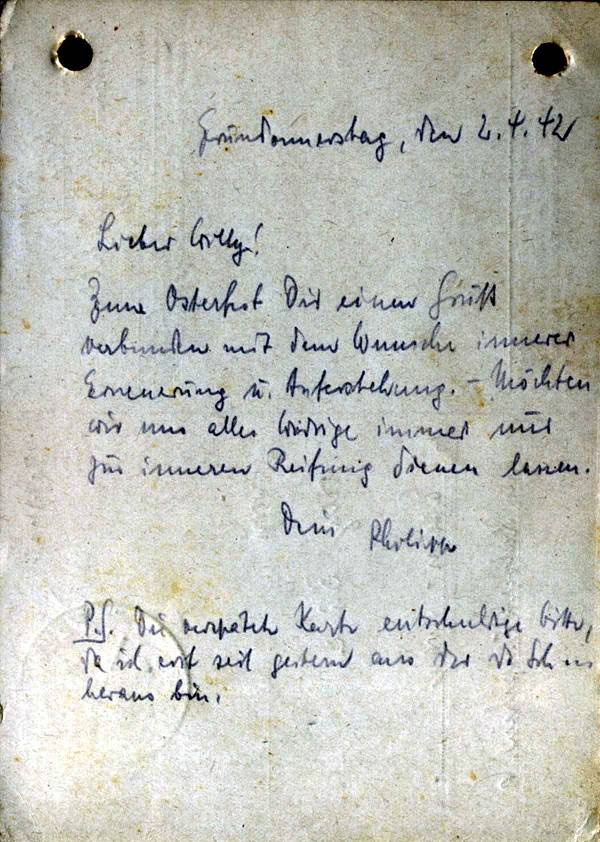 Gründonnerstag, den 2.4.42
Lieber Willy!
Zum Osterfest Dir einen Gruß
verbunden mit dem Wunsche innerer
Erneuerung u. Auferstehung. – Möchten
wir uns alles Widrige immer nur
zur inneren Reifung dienen lassen.
Dein Philipp
P.S. Die verspätete Karte entschuldige bitte,
da ich erst seit gestern aus der
heraus bin.